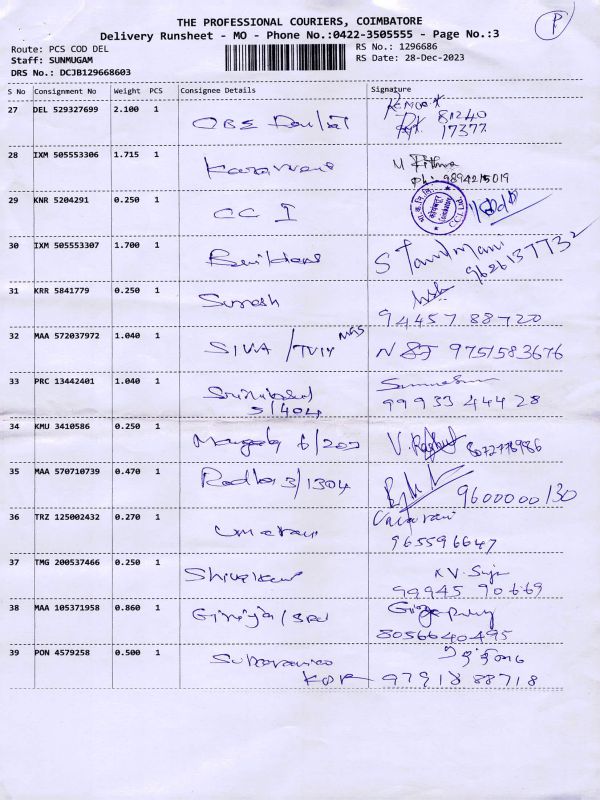 THE PROFESSIONAL COURIERS, COIMBATORE
Delivery Runsheet - MO - Phone No.:0422-3505555 - Page No.:3
P
Route: PCS COD DEL
RS No.: 1296686
Staff: SUNMUGAM
RS Date: 28-Dec-2023
DRS No.: DCJB129668603
S No Consignment No Weight PCS Consignee Details Signature
27 DEL 529327699 2.100 1
81240
17377
28 IXM 505553306 1.715 1
Ph:- 9894215019
29 KNR 5204291 0.250 1 CC I
30 IXM 505553307 1.700 1 Builders S Tamilmani
9626137732
31 KRR 5841779 0.250 1 Suresh
94457 88720
32 MAA 572037972 1.040 1 SIVA / TVIY MGS
9751583676
33 PRC 13442401 1.040 1
5/404 99933 44428
34 KMU 3410586 0.250 1 6/202 V.
8072778986
35 MAA 570710739 0.470 1 Radha 3/1304
9600000130
36 TRZ 125002432 0.270 1
965596647
37 TMG 200537466 0.250 1 Shivakumar
99945 90669
38 MAA 105371958 0.860 1 Girija/
8056640495
39 PON 4579258 0.500 1
97918 88718